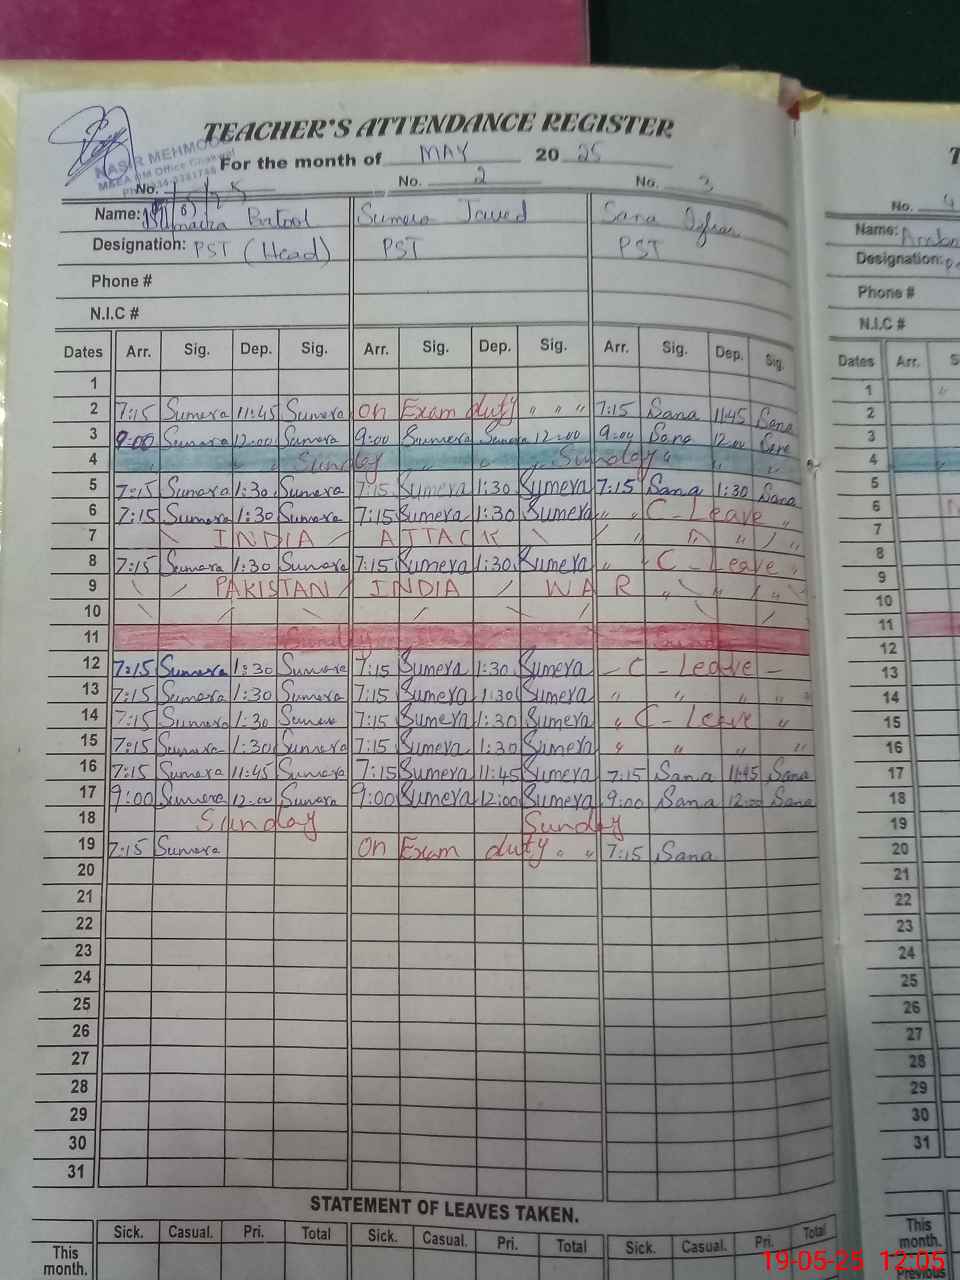 TEACHER'S ATTENDANCE REGISTER
For the month of MAY 2025
NASIR MEHMOOD
No. No. 2 No. 3
Name: Batool Sumera Javed Sana
Designation: PST (Head) PST PST
Phone #
N.I.C #
Dates Arr. Sig. Dep. Sig. Arr. Sig. Dep. Sig. Arr. Sig. Dep. Sig.
1
2 7:15 Sumera 11:45 Sumera On Exam duty " " " 7:15 Sana 11:45 Sana
3 9:00 Sumera 12:00 Sumera 9:00 Sumera Sumera 12:00 9:00 Sana 12:00 Sana
4 Sunday " " " Sunday "
5 7:15 Sumera 1:30 Sumera 7:15 Sumera 1:30 Sumera 7:15 Sana 1:30 Sana
6 7:15 Sumera 1:30 Sumera 7:15 Sumera 1:30 Sumera " " C-Leave "
7 INDIA ATTACK " " "
8 7:15 Sumera 1:30 Sumera 7:15 Sumera 1:30 Sumera " C-Leave "
9 PAKISTAN INDIA WAR "
10
11 Sunday Sunday
12 7:15 Sumera 1:30 Sumera 7:15 Sumera 1:30 Sumera - C-Leave -
13 7:15 Sumera 1:30 Sumera 7:15 Sumera 1:30 Sumera " " " "
14 7:15 Sumera 1:30 Sumera 7:15 Sumera 1:30 Sumera " C-Leave "
15 7:15 Sumera 1:30 Sumera 7:15 Sumera 1:30 Sumera " " " "
16 7:15 Sumera 11:45 Sumera 7:15 Sumera 11:45 Sumera 7:15 Sana 11:45 Sana
17 9:00 Sumera 12:00 Sumera 9:00 Sumera 12:00 Sumera 9:00 Sana 12:00 Sana
18 Sunday Sunday
19 7:15 Sumera On Exam duty " " 7:15 Sana
20
21
22
23
24
25
26
27
28
29
30
31
STATEMENT OF LEAVES TAKEN.
Sick. Casual. Pri. Total Sick. Casual. Pri. Total Sick. Casual. Pri. Total
This month.
No. 4
Name:
Designation:
Phone #
N.I.C #
Dates Arr.
1
2
3
4
5
6
7
8
9
10
11
12
13
14
15
16
17
18
19
20
21
22
23
24
25
26
27
28
29
30
31
This month.
Previous
19-05-25 12:05